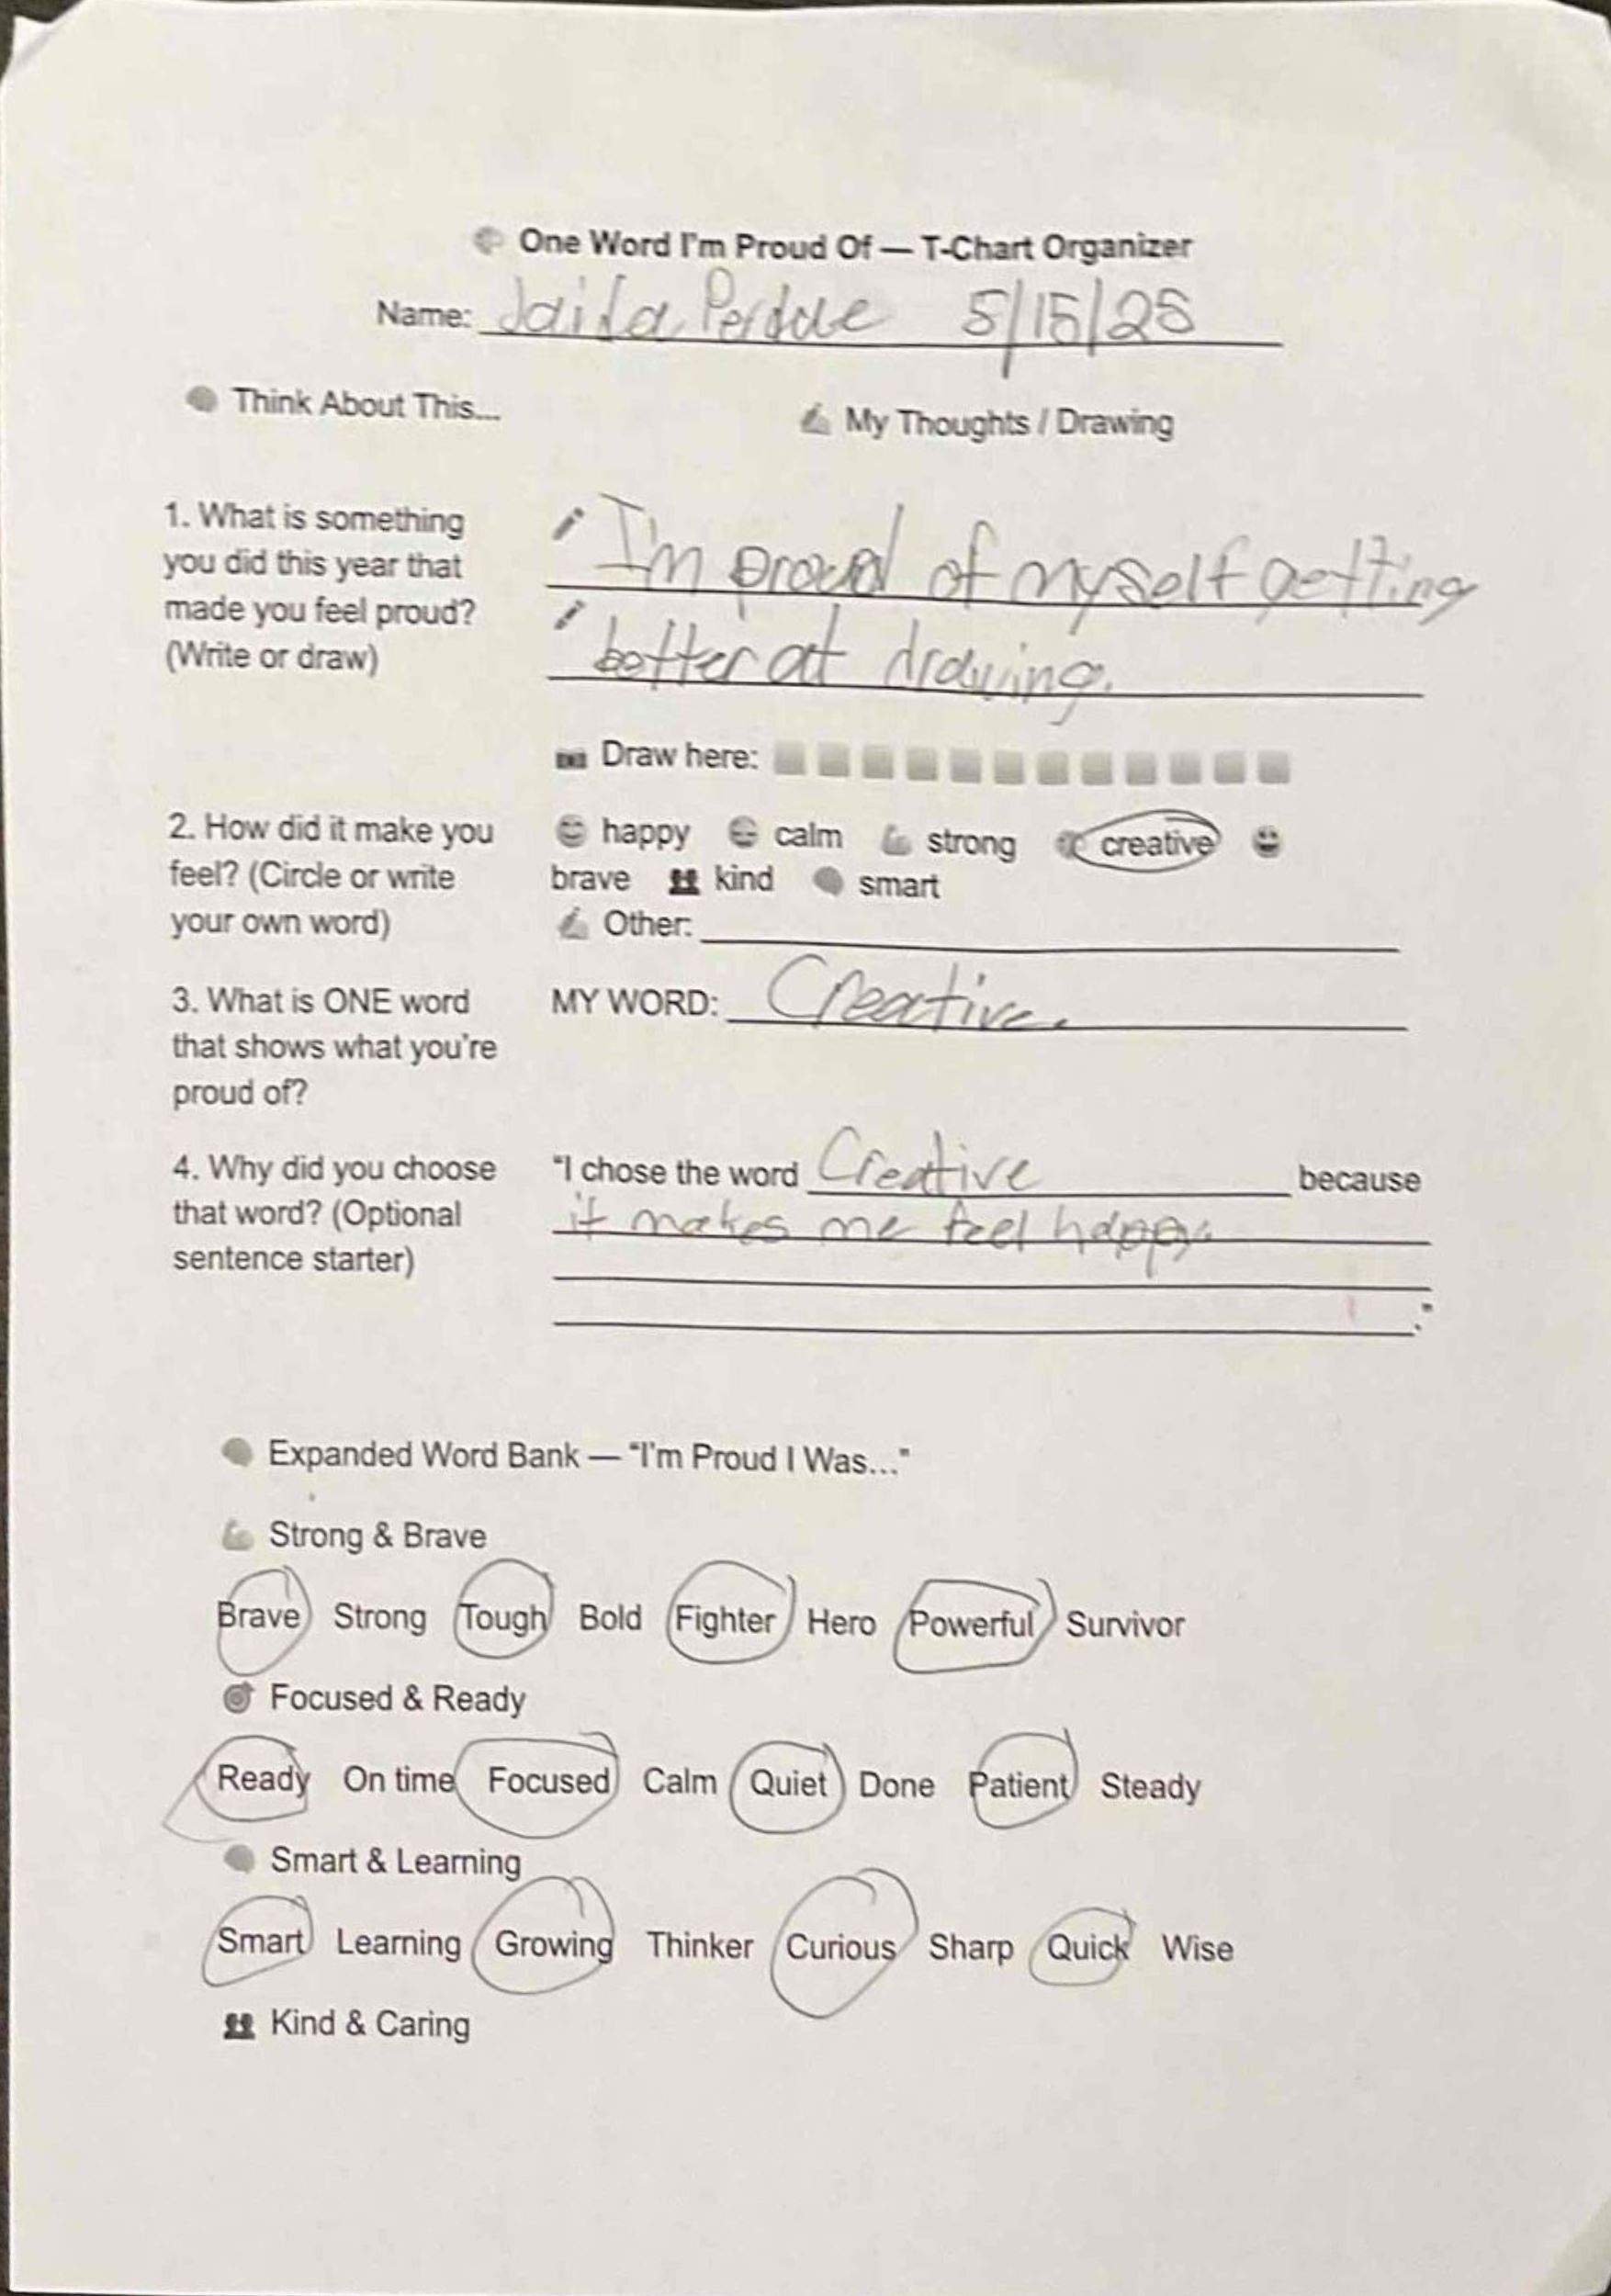 One Word I'm Proud Of — T-Chart Organizer
Name: Jaida Perdue 5/15/25
Think About This...
My Thoughts / Drawing
1. What is something
you did this year that
made you feel proud?
(Write or draw)
I'm proud of myself getting
better at drawing.
Draw here:
2. How did it make you
feel? (Circle or write
your own word)
happy calm strong creative
brave kind smart
Other:
3. What is ONE word
that shows what you're
proud of?
MY WORD: Creative.
4. Why did you choose
that word? (Optional
sentence starter)
"I chose the word Creative because
it makes me feel happy.
."
Expanded Word Bank — "I'm Proud I Was..."
Strong & Brave
Brave Strong Tough Bold Fighter Hero Powerful Survivor
Focused & Ready
Ready On time Focused Calm Quiet Done Patient Steady
Smart & Learning
Smart Learning Growing Thinker Curious Sharp Quick Wise
Kind & Caring